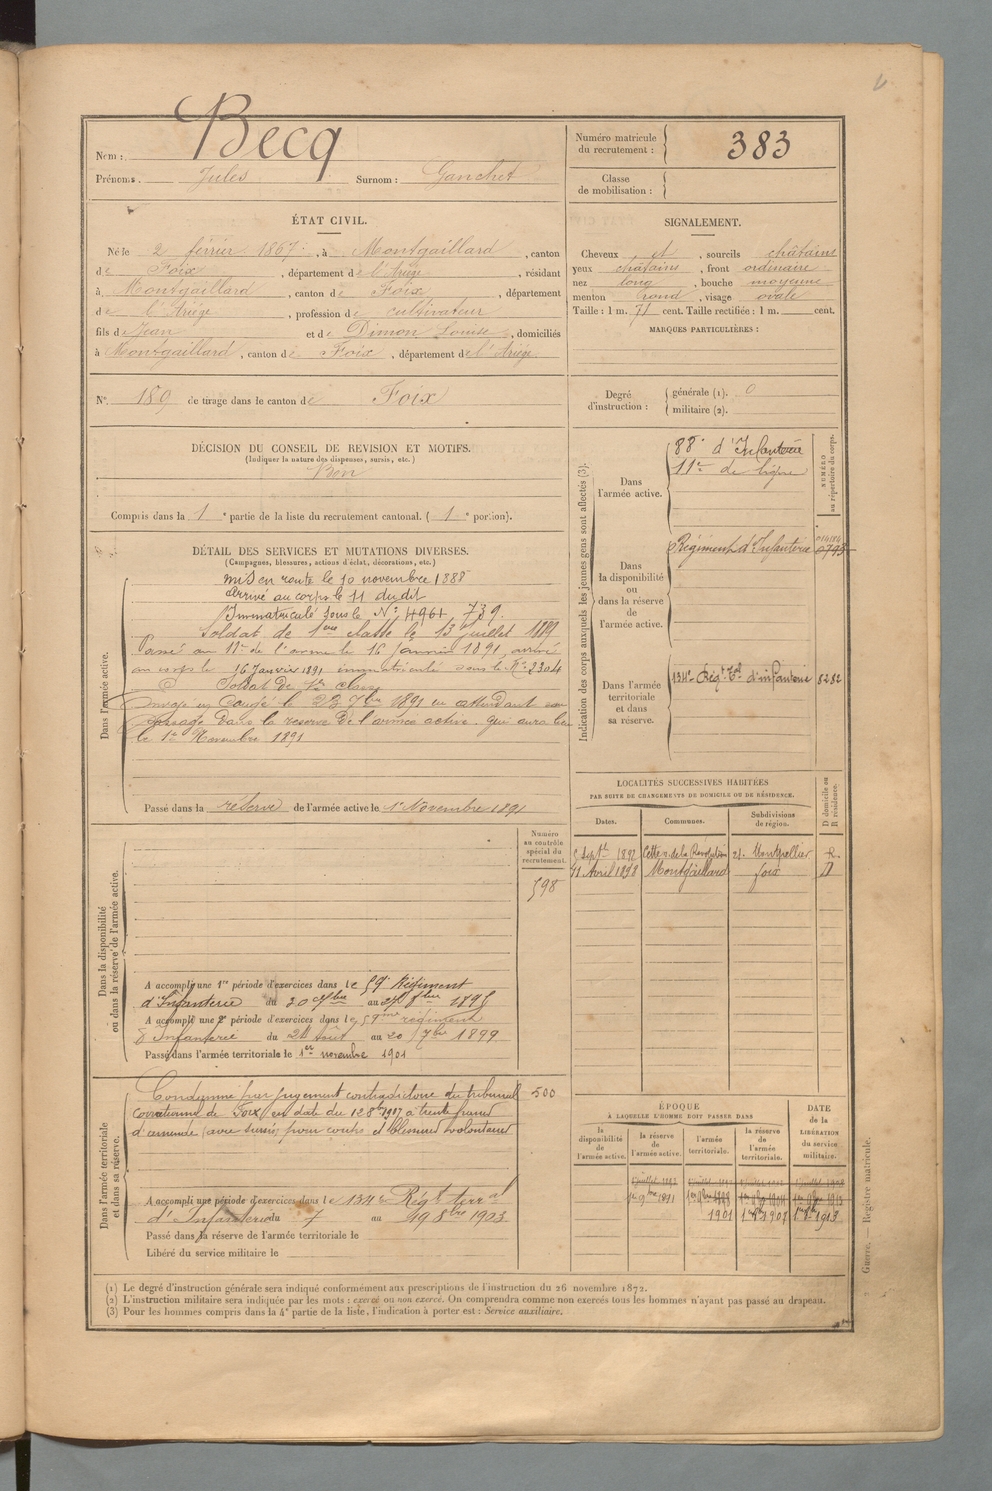 Nom : Becq
Prénoms. Jules Surnom : Ganchet
Numéro matricule
du recrutement : 383
Classe
de mobilisation :
ÉTAT CIVIL.
Né le 2 février 1867, à Montgaillard, canton
de Foix, département de l'Ariège, résidant
à Montgaillard, canton de Foix, département
de l'Ariège, profession de cultivateur
fils de Jean et de Dimon Louise, domiciliés
à Montgaillard, canton de Foix, département de l'Ariège
N° 189 de tirage dans le canton de Foix
SIGNALEMENT.
Cheveux et, sourcils châtains
yeux châtains, front ordinaire
nez long, bouche moyenne
menton rond, visage ovale
Taille : 1 m. 71 cent. Taille rectifiée : 1 m. cent.
MARQUES PARTICULIÈRES :
Degré
d'instruction :
générale (1). 0
militaire (2).
DÉCISION DU CONSEIL DE REVISION ET MOTIFS.
(Indiquer la nature des dispenses, sursis, etc.)
Bon
Compris dans la 1e partie de la liste du recrutement cantonal. (1e portion).
DÉTAIL DES SERVICES ET MUTATIONS DIVERSES.
(Campagnes, blessures, actions d'éclat, décorations, etc.)
Dans l'armée active.
mis en route le 10 novembre 1888
arrivé au corps le 11 dudit
Immatriculé sous le N° 4961 739.
Soldat de 1ère classe le 13 juillet 1889
Passé au 11e de l'arme le 16 janvier 1891, arrivé
au corps le 16 janvier 1891 immatriculé sous le N° 3304
Soldat de 1re classe
Envoyé en congé le 23 7bre 1891 en attendant son
passage dans la réserve de l'armée active, qui aura lieu
le 1er Novembre 1891
Passé dans la réserve de l'armée active le 1er Novembre 1891
Indication des corps auxquels les jeunes gens sont affectés (3).
NUMÉRO
au répertoire du corps.
Dans
l'armée active.
88e d'Infanterie
11e de ligne
Dans
la disponibilité
ou
dans la réserve
de
l'armée active.
Régiment d'Infanterie
Dans l'armée
territoriale
et dans
sa réserve.
134e Régt Tal d'infanterie 8282
LOCALITÉS SUCCESSIVES HABITÉES
PAR SUITE DE CHANGEMENTS DE DOMICILE OU DE RÉSIDENCE.
Dates. Communes. Subdivisions de région. D domicile ou R résidence.
5 Septe 1892 Cette r. de la Révolution 21. Montpellier R
11 Avril 1898 Montgaillard foix D
Dans la disponibilité
ou dans la réserve de l'armée active.
Numéro
au contrôle
spécial du
recrutement.
598
A accompli une 1re période d'exercices dans le 59e Régiment
d'Infanterie du 20 au 1895
A accompli une 2e période d'exercices dans le 59me régiment
d'Infanterie du 24 août au 20 7bre 1899
Passé dans l'armée territoriale le 1er novembre 1901
Dans l'armée territoriale
et dans sa réserve.
Condamné par jugement contradictoire du tribunal 500
correctionnel de Foix, en date du 12 8bre 1907 à trente francs
d'amende (avec sursis) pour coups et blessures volontaires
A accompli une période d'exercices dans le 134e Régt terral
d'Infanterie du 7 au 19 8bre 1903
Passé dans la réserve de l'armée territoriale le
Libéré du service militaire le
ÉPOQUE
À LAQUELLE L'HOMME DOIT PASSER DANS
la disponibilité de l'armée active.
la réserve de l'armée active.
l'armée territoriale.
la réserve de l'armée territoriale.
DATE de la LIBÉRATION du service militaire.
1er 9bre 1891
1901
Guerre. — Registre matricule.
(1) Le degré d'instruction générale sera indiqué conformément aux prescriptions de l'instruction du 26 novembre 1872.
(2) L'instruction militaire sera indiquée par les mots : exercé ou non exercé. On comprendra comme non exercés tous les hommes n'ayant pas passé au drapeau.
(3) Pour les hommes compris dans la 4e partie de la liste, l'indication à porter est : Service auxiliaire.